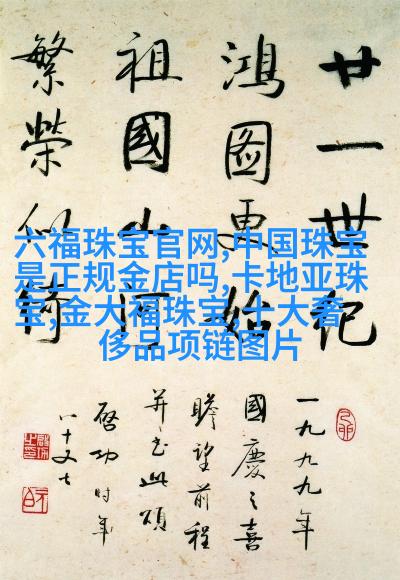 廿一世紀
鴻图更始
祖國山河
繁榮似綺
六福珠宝官网,中国珠宝
是正规金店吗,卡地亚珠
宝,金大福珠宝,十大奢
侈品项链图片
一九九九年
國慶之喜
瞻望前程
并书此頌
啓功时年
八十又七